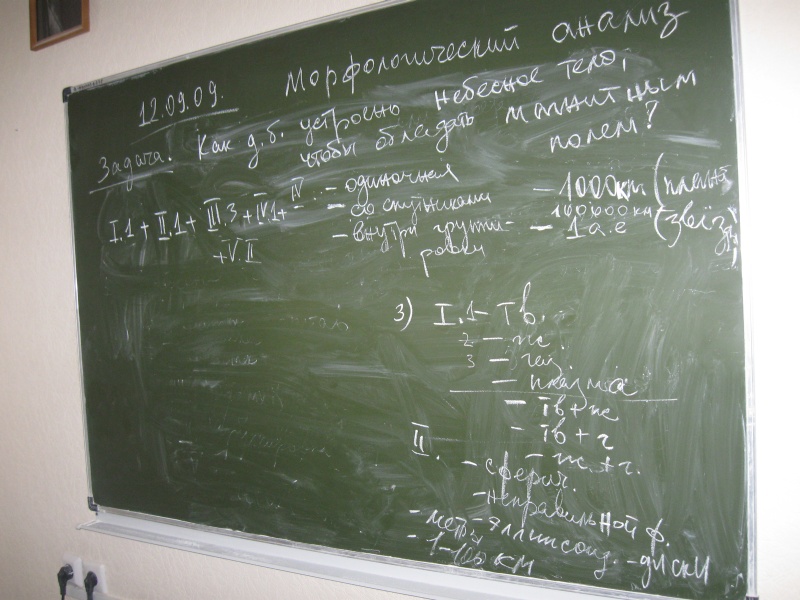 12.09.09. Морфологический анализ
Задача: Как д.б. устроено небесное тело,
чтобы обладать магнитным
полем?
I.1 + II.1 + III.3 + IV.1 +
+ V.II
IV. - одиночная
- со спутниками
- внутри группи-
ровки
- 1000км (планет
100000км
- 1 а.е (звёзд)
3) I.1 - Тв.
2 - ж.
3 - газ.
- плазма
- Тв + ж
- Тв + г
- ж. + г.
II. - сферич.
- неправильной ф.
- эллипсоид. - диски
- метр
- 1-100 км